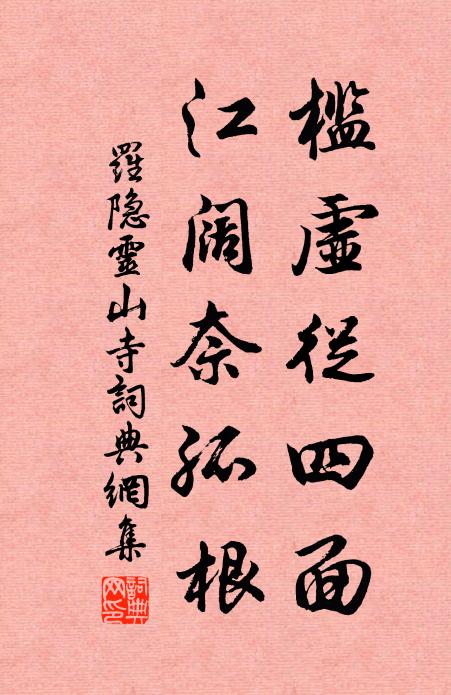 檻虛從四面
江阔奈孤根
羅隐靈山寺詞典網集
詞典網印